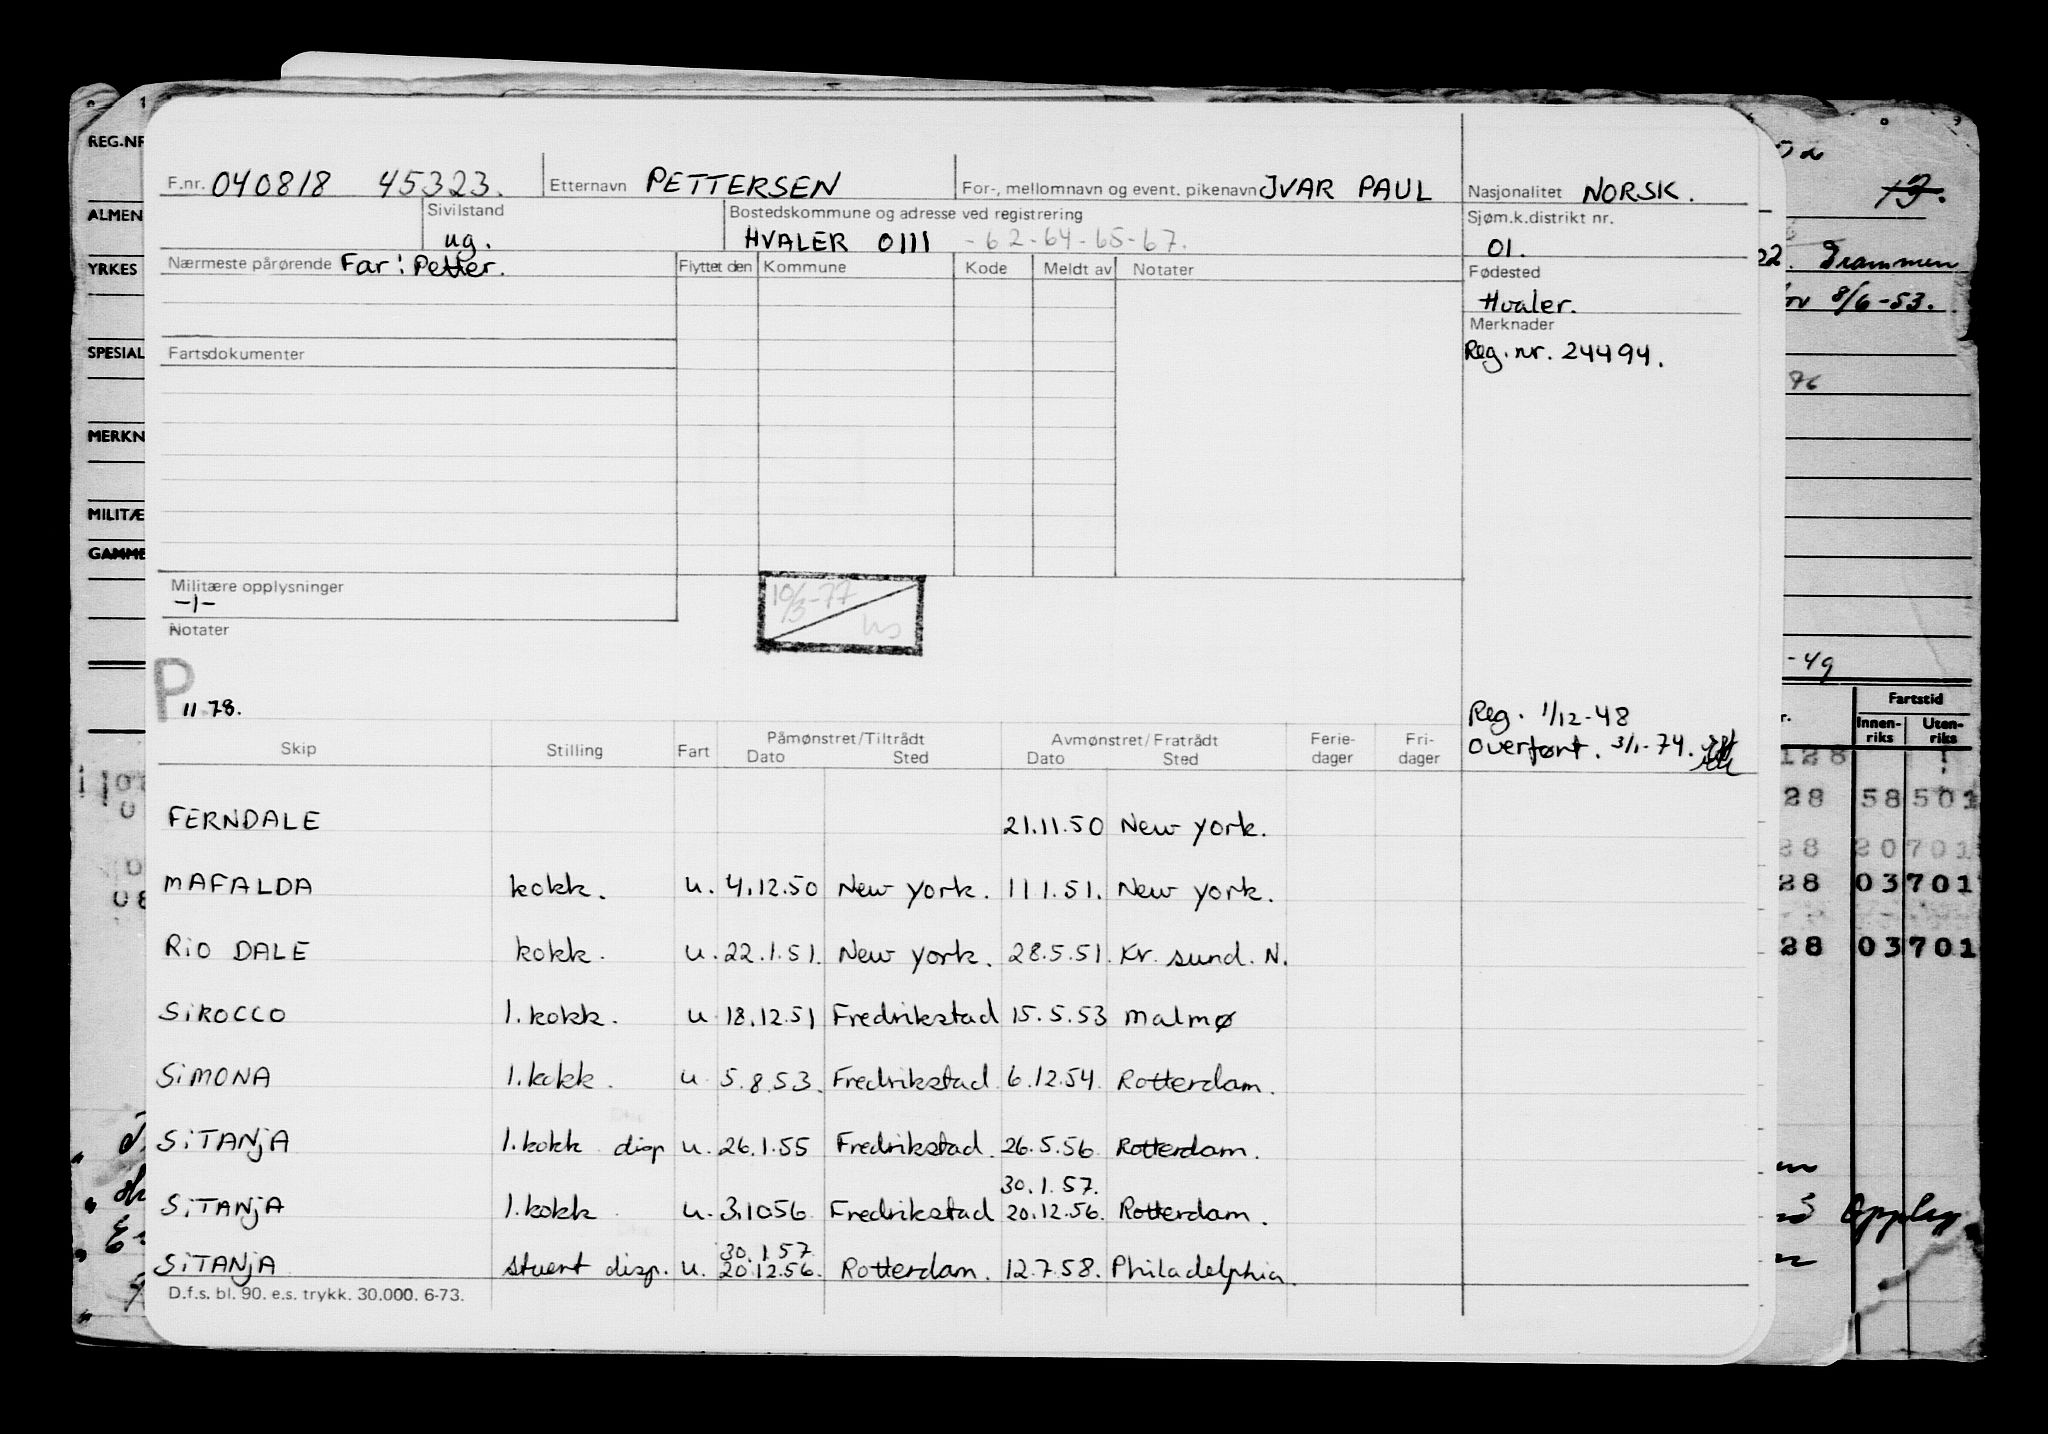 REG.NR
ALMEN
YRKES
SPESIAL
MERKN
MILITÆ
GAMME
F.nr. 040818 45323. Etternavn PETTERSEN For-, mellomnavn og event. pikenavn IVAR PAUL Nasjonalitet NORSK.
Sivilstand ug. Bostedskommune og adresse ved registrering HVALER 0111 - 62-64-65-67. Sjøm.k.distrikt nr. 01.
Nærmeste pårørende Far: Petter. Flyttet den Kommune Kode Meldt av Notater Fødested
Hvaler.
Merknader
Fartsdokumenter Reg. nr. 24494.
Militære opplysninger
-1-
Notater
10/3-77
P
11.78.
Reg. 1/12-48
Overført. 3/1-74.
Skip Stilling Fart Påmønstret/Tiltrådt Dato Sted Avmønstret/Fratrådt Dato Sted Ferie-dager Fri-dager
FERNDALE 21.11.50 New York.
MAFALDA kokk. u. 4.12.50 New York. 11.1.51. New York.
RIO DALE kokk. u. 22.1.51. New York. 28.5.51. Kr. sund. N.
SIROCCO 1. kokk. u 18.12.51 Fredrikstad 15.5.53 Malmø
SIMONA 1. kokk. u. 5.8.53. Fredrikstad 6.12.54. Rotterdam.
SITANJA 1. kokk disp u. 26.1.55 Fredrikstad. 26.5.56. Rotterdam.
30.1.57.
SITANJA 1. kokk u. 3.10.56 Fredrikstad 20.12.56. Rotterdam.
30.1.57
SITANJA stuert disp. u. 20.12.56. Rotterdam. 12.7.58. Philadelphia.
D.f.s. bl. 90. e.s. trykk. 30.000. 6-73.
13.
22. Drammen
8/6-53.
76
-49
Fartstid
Innen-riks Uten-riks
128
28 58 501
28 20 701
28 03 701
28 03 701